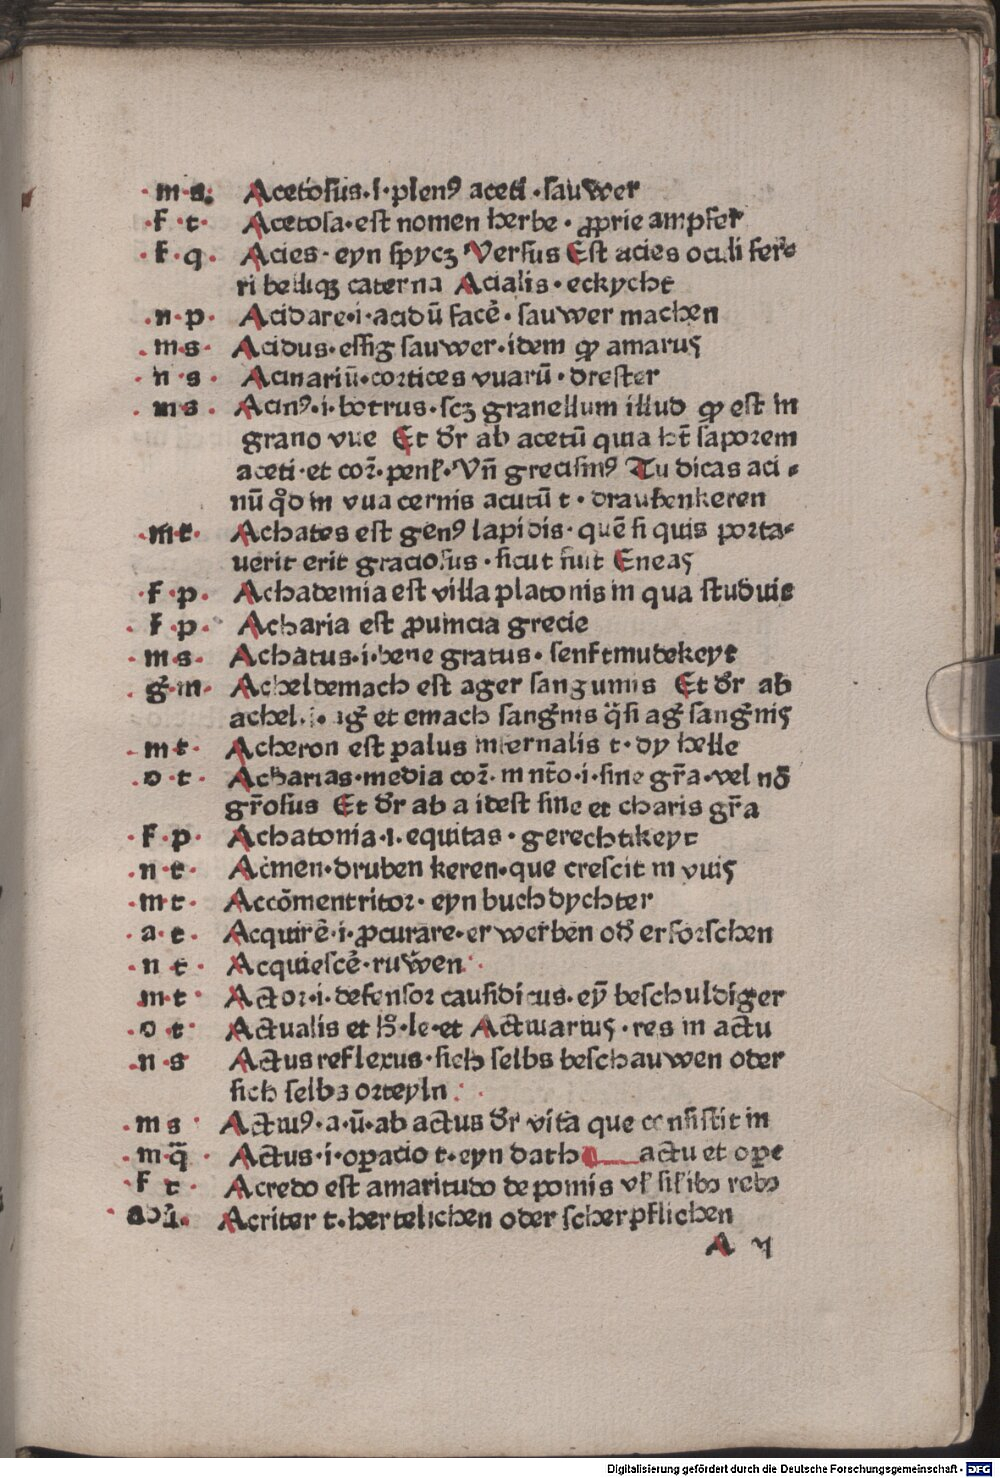 ·m·s· Acetosus·i·plenꝰ aceti·sauwer
·f·t· Acetosa·est nomen herbe·ꝓprie ampfer
·f·q· Acies·eyn spycꝫ Versus Est acies oculi fer⸗
ri belliqꝫ caterna Acialis·eckycht
·n·p· Acidare·i·acidū facē·sauwer machen
·m·s· Acidus·essig sauwer·idem ꝙ amarus
·n·s· Acinariū·cortices vuarū·drester
·m·s· Acinꝰ·i·botrus·scꝫ granellum illud ꝙ est in
grano vue Et dr̄ ab acetū quia ht̄ saporem
aceti·et cor̄·penl̄·Vn̄ grecismꝰ Tu dicas aci⸗
nū qd̊ in vua cernis acutū t·draubenkeren
·m·t· Achates est genꝰ lapidis·quē si quis porta⸗
uerit erit graciosus·sicut fuit Eneas
·f·p· Achademia est villa platonis in qua studuit
·f·p· Acharia est ꝓuincia grecie
·m·s· Achatus·i·bene gratus·senftmudekeyt
·ḡ·m· Acheldemach est ager sangunnis Et dr̄ ab
achel·i· aḡ et emach sanḡnis q̈si aḡ sanḡnis
·m·t· Acheron est palus infernalis t·dy helle
·o·t· Acharias·media cor̄·in nt̄o·i·sine gr̄a·vel nō
gr̄osus Et dr̄ ab a idest sine et charis gr̄a
·f·p· Achatonia·i·equitas·gerechtikeyt
·n·t· Acīnen·druben keren·que crescit in vuis
·m·t· Accōmentritor·eyn buch dychter
·a·t· Acquirē·i·ꝓcurare·er werben od̄ erforschen
·n·t· Acquiescē·ruwen
·m·t· Actor·i·defensor causidicus·eȳ beschuldiger
·o·t· Actualis et h̄·le·et Actuarius·res in actu
·n·s Actus reflexus·sich selbs beschauwen oder
sich selbs orteyln
·m s Actiuꝰ·a·ū·ab actus dr̄ vita que consistit in
·m·q̄ Actus·i·oꝑacio t·eyn dath actu et oꝑe
·f t· Acredo est amaritudo de pomis vl̄ sil̄ibꝫ rebꝫ
Acriter t·hertelichen oder scherpflichen
A ij
Digitalisierung gefördert durch die Deutsche Forschungsgemeinschaft - DFG